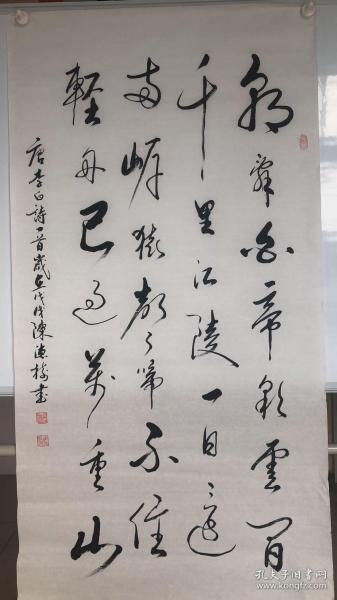 朝辞白帝彩雲間
千里江陵一日還
兩岸猿聲啼不住
輕舟已過萬重山
唐李白詩一首歲在戊戌陳書
孔夫子旧书网